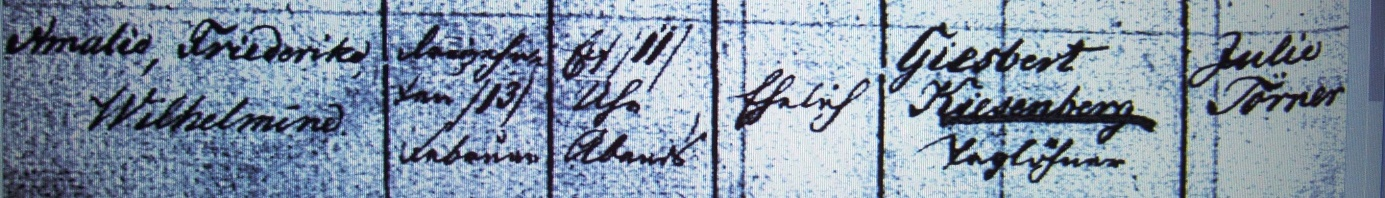 Amalie, Friederike,
Wilhelmine.
dreizehn-
ten /13/
Februar
Elf /11/
Uhr
Abends
Ehelich
Giesbert
Kiesenberg
Taglöhner
Julie
Törner